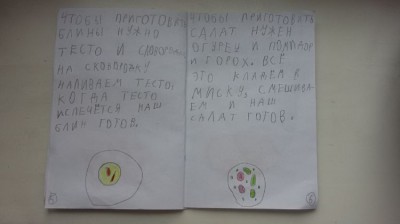 ЧТОБЫ ПРИГОТОВИТЬ
БЛИНЫ НУЖНО
ТЕСТО И СКОВОРОДА
НА СКОВОРОДКУ
НАЛИВАЕМ ТЕСТО,
КОГДА ТЕСТО
ИСПЕЧЁТСЯ НАШ
БЛИН ГОТОВ.
ЧТОБЫ ПРИГОТОВИТЬ
САЛАТ НУЖЕН
ОГУРЕЦ И ПОМИДОР
И ГОРОХ. ВСЁ
ЭТО КЛАДЁМ В
МИСКУ, СМЕШИВА
ЕМ И НАШ
САЛАТ ГОТОВ.